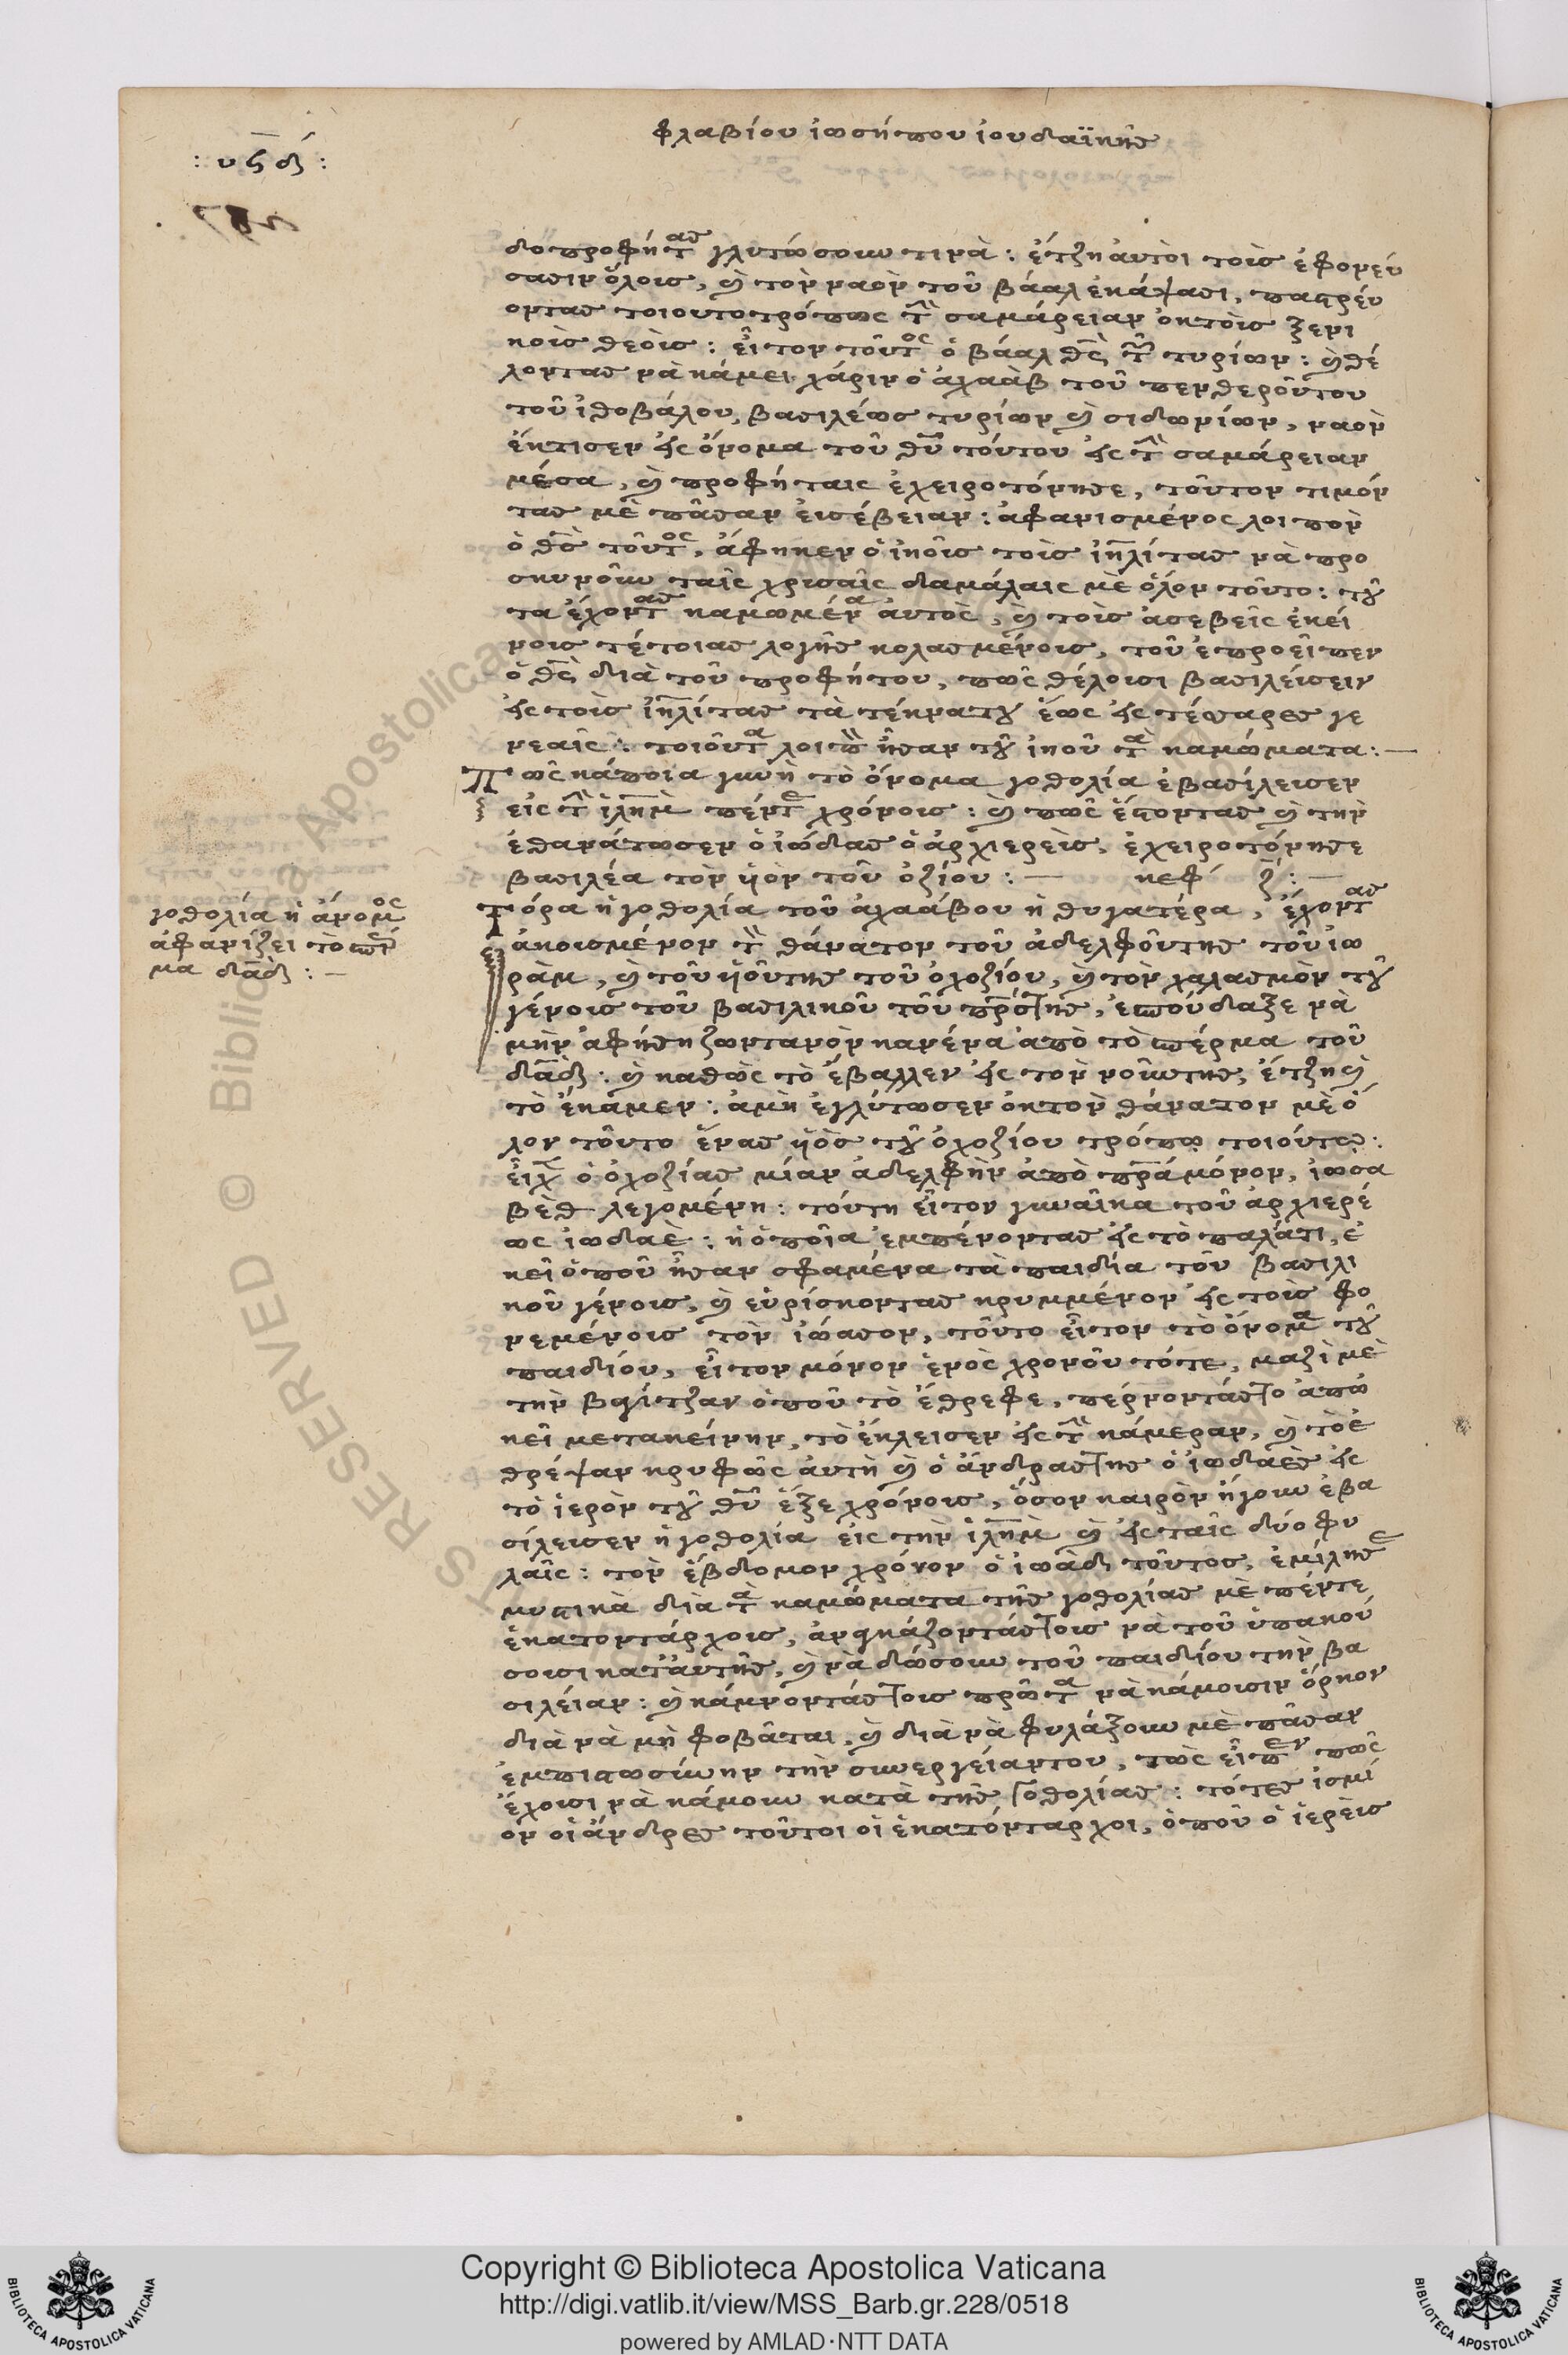 φλαβίου ἰωσήπου ἰουδαϊκῆς
: υϟδ :
δοπροφήτας γλυτώσουν τινὰ : ἔτζη ἀυτὸι τοὶσ ἐφονεύ
σασιν ὅλοισ, καὶ τὸν ναὸν τοῦ βάαλ ἐκάψασι, παστρέυ
οντασ τοιουτοτρόπως τὴν σαμάρειαν ὀκτοὶσ ξενι
κοὶσ θεοὶσ : εἶτον τοῦτος ὁ βάαλ θς τῶν τυρίων : καὶ θέ
λοντασ νὰ κάμει χάριν ὁ ἀχαὰβ τοῦ πενθεροῦτου
τοῦ ἰθοβάλου, βασιλέωσ τυρίων καὶ σιδωνίων, ναὸν
ἔκτισεν εἰς ὄνομα τοῦ θῦ τούτου εἰς τὴν σαμάρειαν
μέσα, καὶ προφήταις ἐχειροτόνησε, τοῦτον τιμόν
τασ μὲ πᾶσαν εἰσέβειαν : ἀφανισμένος λοιπὸν
ὁ θσ τοῦτος, ἄφηκεν ὁ ἰηοῖσ τοὶσ ἰηλίτασ νὰ προ
σκυνοῖν ταῖς χρισαῖς δαμάλαις μὲ ὅλον τοῦτο : τοῦ
τα ἔχοντας καμωμένα ἀυτὸς, καὶ τοὶσ ἀσεβεῖς ἐκεί
νοισ τέτοιασ λογῆσ κολασμένοισ, τοῦ ἐπροεῖπεν
ὁ θς διὰ τοῦ προφήτου, πῶς θέλοισι βασιλείσειν
εἰς τοὶσ ἰηλίτασ τὰ τέκνατου ἕως εἰς τέσσαρεσ γε
νεαῖς : τοιοῦτα λοιπὸν ἦσαν τοῦ ἰηοῦ τὰ καμώματα :—
Πῶς κάποια γυνὴ τὸ ὄνομα γοθολία ἐβασίλεισεν
εἰς τὴν ἰλημ πέντε χρόνοισ : καὶ πῶς ἔστοντασ καὶ τὴν
ἐθανάτωσεν ὁ ἰώδασ ὁ ἀρχιερεὶσ, ἐχειροτόνησε
βασιλέα τὸν ὑὸν τοῦ ὀζίου :— κεφ ζ :—
Τόρα ἡ γοθολία τοῦ ἀχαάβου ἡ θυγατέρα, ἔχοντας
ἀκοισμένον τὴν θάνατον τοῦ ἀδελφοῦτησ τοῦ ἰω
ρὰμ, καὶ τοῦ ὑοῦτησ τοῦ ὀχοζίου, καὶ τὸν χαλασμὸν τοῦ
γένοισ τοῦ βασιλικοῦ τοῦ πρστησ, ἐσπούδαξε νὰ
μὴν ἀφήσῃ ζωντανὸν κανένα ἀπὸ τὸ σπέρμα τοῦ
δαδ : καὶ καθὼς τὸ ἔβαλλεν εἰς τὸν νοῦντησ, ἔτζη καὶ
τὸ ἔκαμεν : ἀμὴ ἐγλύτωσεν ὀκτὸν θάνατον μὲ ὅ
λον τοῦτο ἕνασ ὑὸσ τοῦ ὀχοζίου τρόπῳ τοιούτῳ :
εἶχε ὁ ὀχοζίασ μίαν ἀδελφὴν ἀπὸ πρα μόνον, ἰωσα
βὲθ λεγομένη : τούτη εἶτον γυναῖκα τοῦ ἀρχιερέ
ως ἰωδαὲ : ἡ ὁποῖα ἐμπένοντασ εἰς τὸ παλάτι, ἐ
κεῖ ὁποῦ ἦσαν σφαμένα τὰ παιδία τοῦ βασιλι
κοῦ γένοισ, καὶ εὑρίσκοντασ κρυμμένον εἰς τοὶσ φο
νεμένοισ τὸν ἰώασον, τοῦτο εἶτον τὸ ὄνομα τοῦ
παιδίου, εἶτον μόνον ἑνὸς χρονοῦ τότε, μαζὶ μὲ
τὴν βυΐτζαν ὁποῦ τὸ ἔθρεφε, πέρνοντάστο ἀπὸ
κεῖ μετακείνην, τὸ ἔκλεισεν εἰς τὴν κάμεραν, καὶ τὸ ἐ
θρέψαν κρυφῶς ἀυτὴ καὶ ὁ ἄνδραστησ ὁ ἰωδαὲσ εἰς
τὸ ἱερὸν τοῦ θῦ ἕξε χρόνοισ, ὅσον καιρὸν ἤγουν ἐβα
σίλεισεν ἡ γοθολία εἰς τὴν ἰλημ καὶ εἰς ταῖς δύο φυ
λαῖς : τὸν ἕβδομον χρόνον ὁ ἰωὰδ τοῦτοσ, ἐμίλησε
μυστικὰ διὰ τὰ καμώματα τῆσ γοθολίασ μὲ πέντε
ἑκατοντάρχοισ, ἀνγκάζοντάστοισ νὰ τοῦ ὑπακού
σοισι κατ᾽ἀυτῆσ, καὶ νὰ δώσουν τοῦ παιδίου τὴν βα
σιλείαν : καὶ κάμνοντάστοισ πρῶτα νὰ κάμοισιν ὅρκον
διὰ νὰ μὴ φοβᾶται, καὶ διὰ νὰ φυλάξουν μὲ πᾶσαν
ἐμπιστωσύνην τὴν συνεργείαντου, τῶς εἶπεν πῶς
ἔχοισι νὰ κάμουν κατὰ τῆσ γοθολίασ : τότεσ ἰσμί
ον οἱ ἄνδρεσ τοῦτοι οἱ ἑκατόνταρχοι, ὁποῦ ὁ ἱερὲισ
γοθολία ἡ ἄνομος
ἀφανίζει τὸ σπέρ
μα δαδ :—
Copyright © Biblioteca Apostolica Vaticana
http://digi.vatlib.it/view/MSS_Barb.gr.228/0518
powered by AMLAD·NTT DATA
BIBLIOTECA APOSTOLICA VATICANA
BIBLIOTECA APOSTOLICA VATICANA